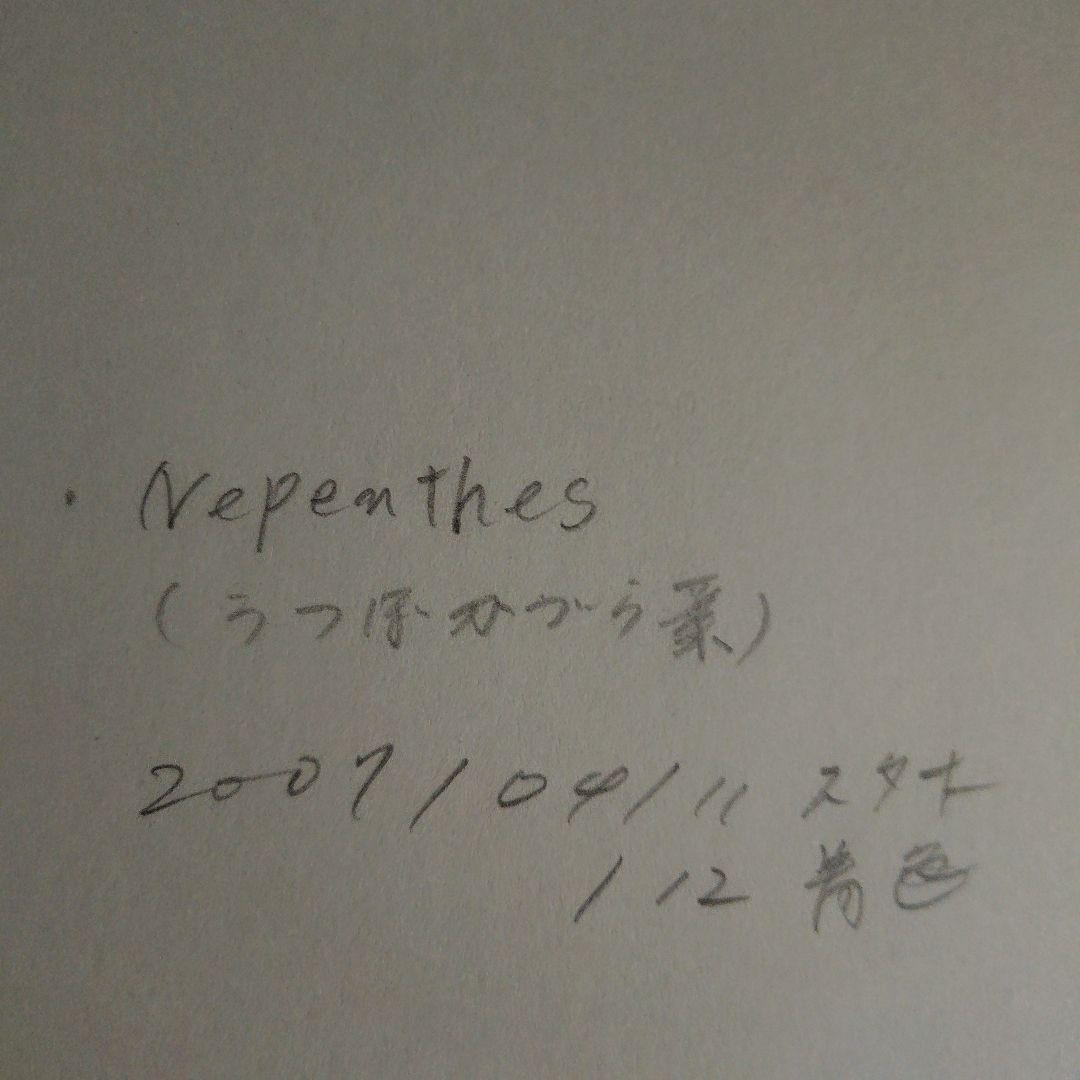 ・Nepenthes
(うつぼかづら葉)
2007/04/11 スタート
/12 着色